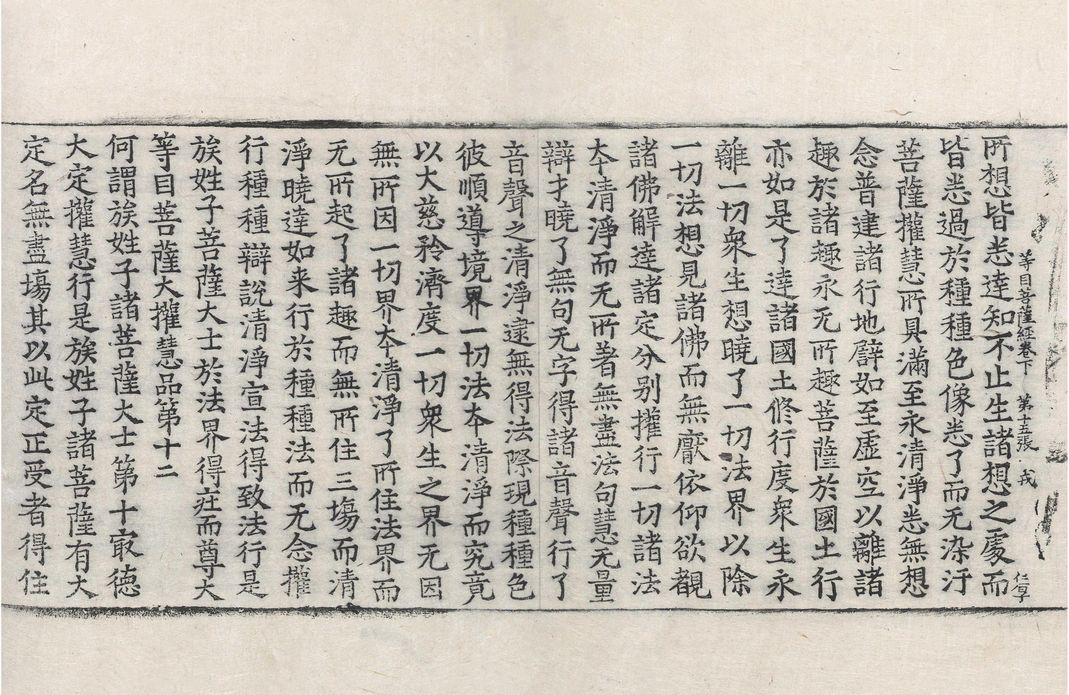 等目菩薩經卷下 第十五張 戎 仁亨
所想皆悉達知不止生諸想之處而
皆悉過於種種色像悉了而无染汙
菩薩攉慧所具滿至永清淨悉無想
念普建諸行地譬如至虛空以離諸
趣於諸趣永无所趣菩薩於國土行
亦如是了達諸國土修行度衆生永
離一切衆生想曉了一切法界以除
一切法想見諸佛而無猒依仰欲覩
諸佛解達諸定分別攉行一切諸法
夲清淨而无所著無盡法句慧无量
辯才曉了無句无字得諸音聲行了
音聲之清淨遠無得法際現種種色
彼順導境界一切法夲清淨而究竟
以大慈矜濟度一切衆生之界无因
無所因一切界夲清淨了所住法界而
无所起了諸趣而無所住三塲而清
淨曉達如来行於種種法而无念攉
行種種辯說清淨宣法得致法行是
族姓子菩薩大士於法界得莊而尊大
等目菩薩大攉慧品第十二
何謂族姓子諸菩薩大士第十㝡德
大定攉慧行是族姓子諸菩薩有大
定名無盡塲其以此定正受者得住